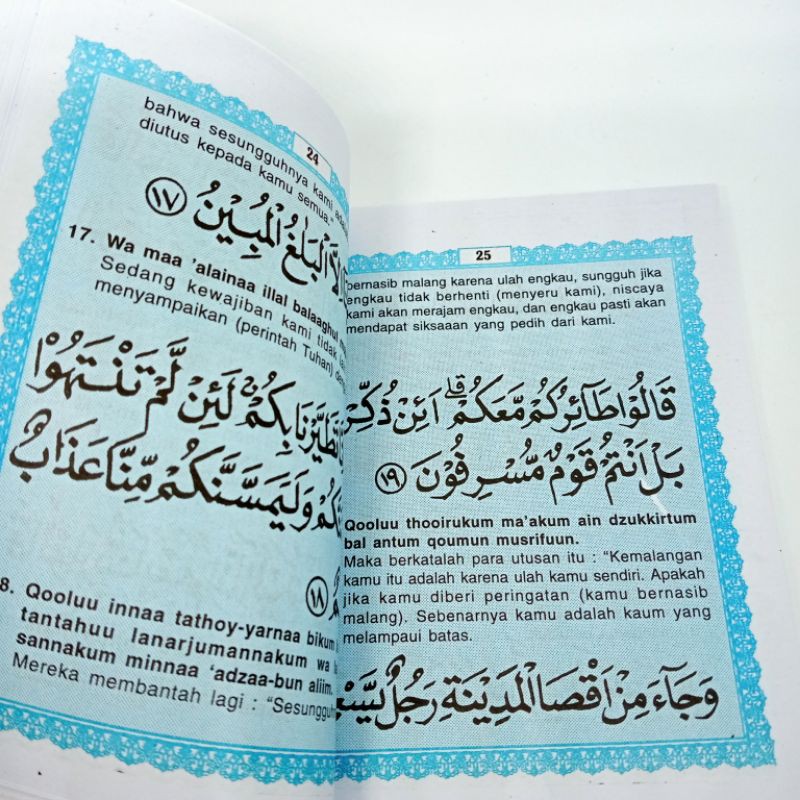 24
bahwa sesungguhnya kami
diutus kepada kamu semua."
اِلَّا الْبَلٰغُ الْمُبِيْنُ ١٧
17. Wa maa 'alainaa illal balaaghul
Sedang kewajiban kami tidak
menyampaikan (perintah Tuhan)
تَطَيَّرْنَا بِكُمْ لَئِنْ لَّمْ تَنْتَهُوْا
وَلَيَمَسَّنَّكُمْ مِّنَّا عَذَابٌ
١٨
8. Qooluu innaa tathoy-yarnaa bikum
tantahuu lanarjumannakum wa
sannakum minnaa 'adzaa-bun aliim.
Mereka membantah lagi :
25
bernasib malang karena ulah engkau, sungguh jika
engkau tidak berhenti (menyeru kami), niscaya
kami akan merajam engkau, dan engkau pasti akan
mendapat siksaaan yang pedih dari kami.
قَالُوْا طَآئِرُكُمْ مَّعَكُمْ ۗ اَئِنْ
بَلْ اَنْتُمْ قَوْمٌ مُّسْرِفُوْنَ ١٩
Qooluu thooirukum ma'akum ain dzukkirtum
bal antum qoumun musrifuun.
Maka berkatalah para utusan itu : "Kemalangan
kamu itu adalah karena ulah kamu sendiri. Apakah
jika kamu diberi peringatan (kamu bernasib
malang). Sebenarnya kamu adalah kaum yang
melampaui batas.
وَجَآءَ مِنْ اَقْصَا الْمَدِيْنَةِ رَجُلٌ